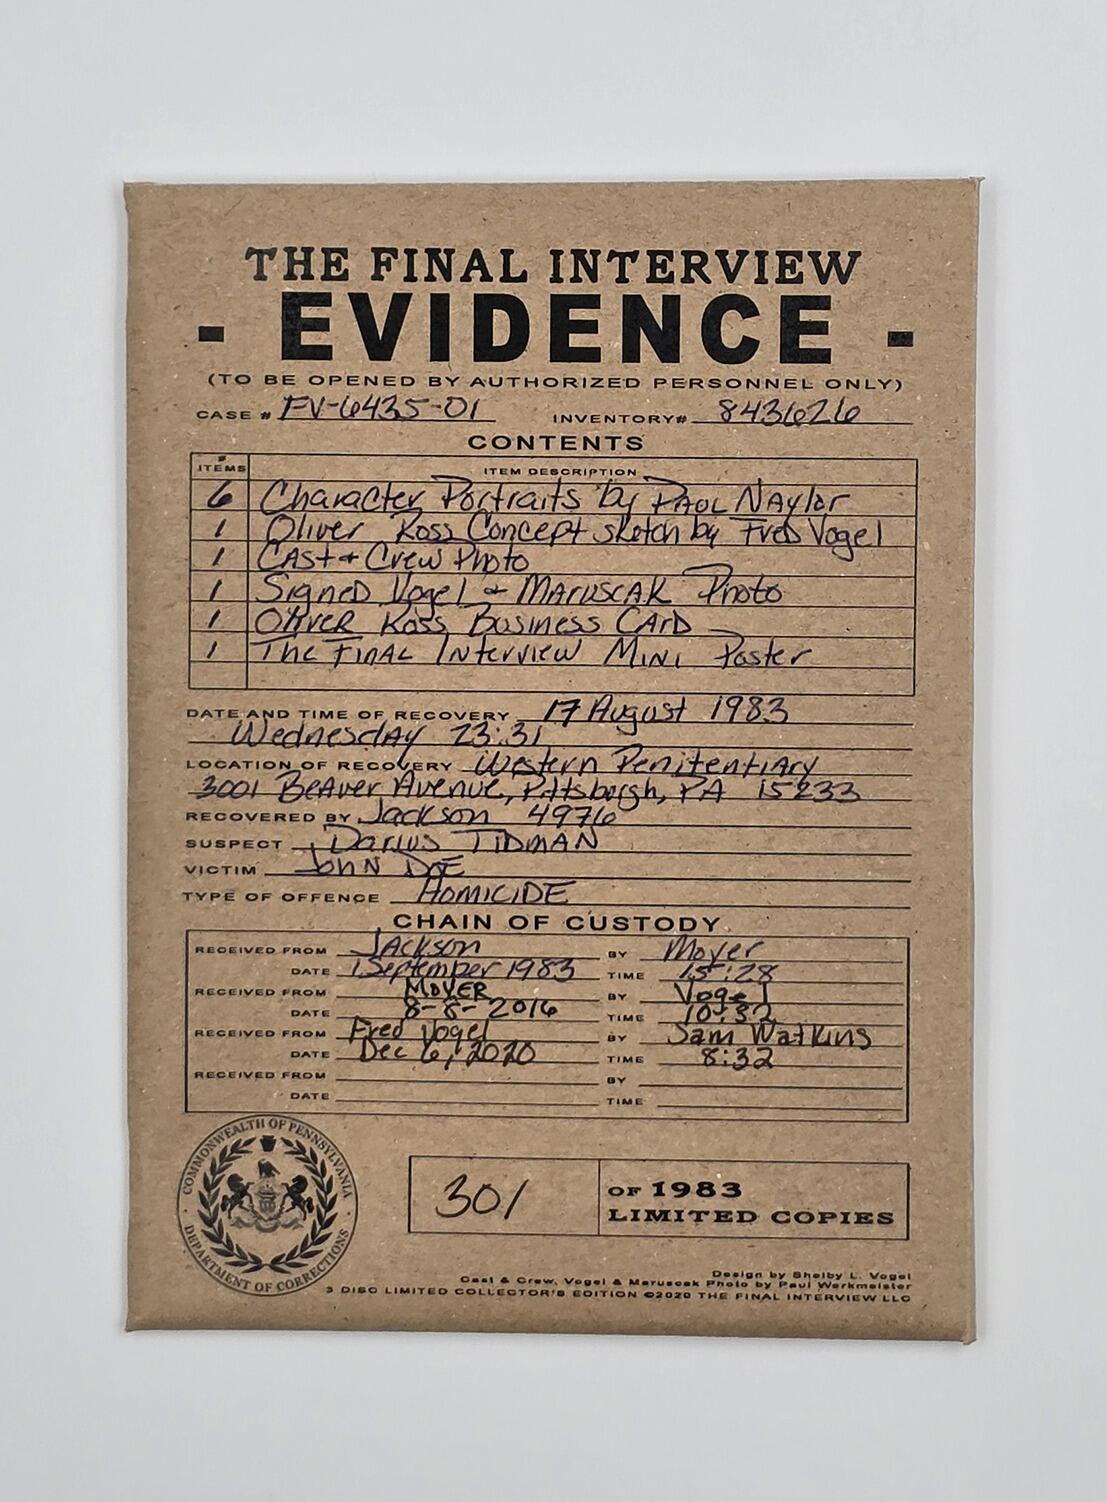 THE FINAL INTERVIEW
- EVIDENCE -
(TO BE OPENED BY AUTHORIZED PERSONNEL ONLY)
CASE # FV-6435-01 INVENTORY# 843626
CONTENTS
# ITEMS ITEM DESCRIPTION
6 Character Portraits by PAUL NAylor
1 Oliver Ross Concept sketch by Fred Vogel
1 CAST & Crew Photo
1 SigneD Vogel & MAruscAK Photo
1 Oliver Ross Business CArD
1 The FINAL INterview MiNi Poster
DATE AND TIME OF RECOVERY 17 August 1983
Wednesday 23:31
LOCATION OF RECOVERY Western Penitentiary
3001 BeAver Avenue, Pittsburgh, PA 15233
RECOVERED BY Jackson 4976
SUSPECT Darius TIDMAN
VICTIM JohN DoE
TYPE OF OFFENCE HOMICIDE
CHAIN OF CUSTODY
RECEIVED FROM JAckson BY Moyer
DATE 1 September 1983 TIME 15:28
RECEIVED FROM MOYER BY Vogel
DATE 8-8-2016 TIME 10:32
RECEIVED FROM Fred Vogel BY Sam Watkins
DATE Dec 6, 2020 TIME 8:32
RECEIVED FROM BY
DATE TIME
COMMONWEALTH OF PENNSYLVANIA
DEPARTMENT OF CORRECTIONS
301 OF 1983
LIMITED COPIES
Design by Shelby L. Vogel
Cast & Crew, Vogel & Maruscak Photo by Paul Werkmeister
3 DISC LIMITED COLLECTOR'S EDITION ©2020 THE FINAL INTERVIEW LLC